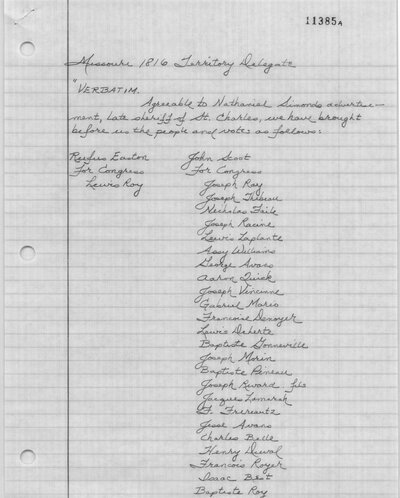 11385A
Missouri 1816 Territory Delegate
"VERBATIM.
Agreeable to Nathaniel Simonds advertise-
ment, late sheriff of St. Charles, we have brought
before us the people and votes as follows:
Rufus Easton
For Congress
Lewis Roy
John Scot
For Congress
Joseph Roy
Joseph Thibeau
Nicholas
Joseph Racine
Lewis Laplante
Assy Williams
George Avaos
Aaron Quick
Joseph Vincinne
Gabriel Mario
Francoise Denoyer
Lewis Deherte
Baptiste Gonneville
Joseph Morin
Baptiste Peneau
Joseph Rivard fils
Jacques Lamarsh
F.
Jesse Avans
Charles Belle
Henry Duval
Francois Royer
Isaac Best
Baptiste Roy